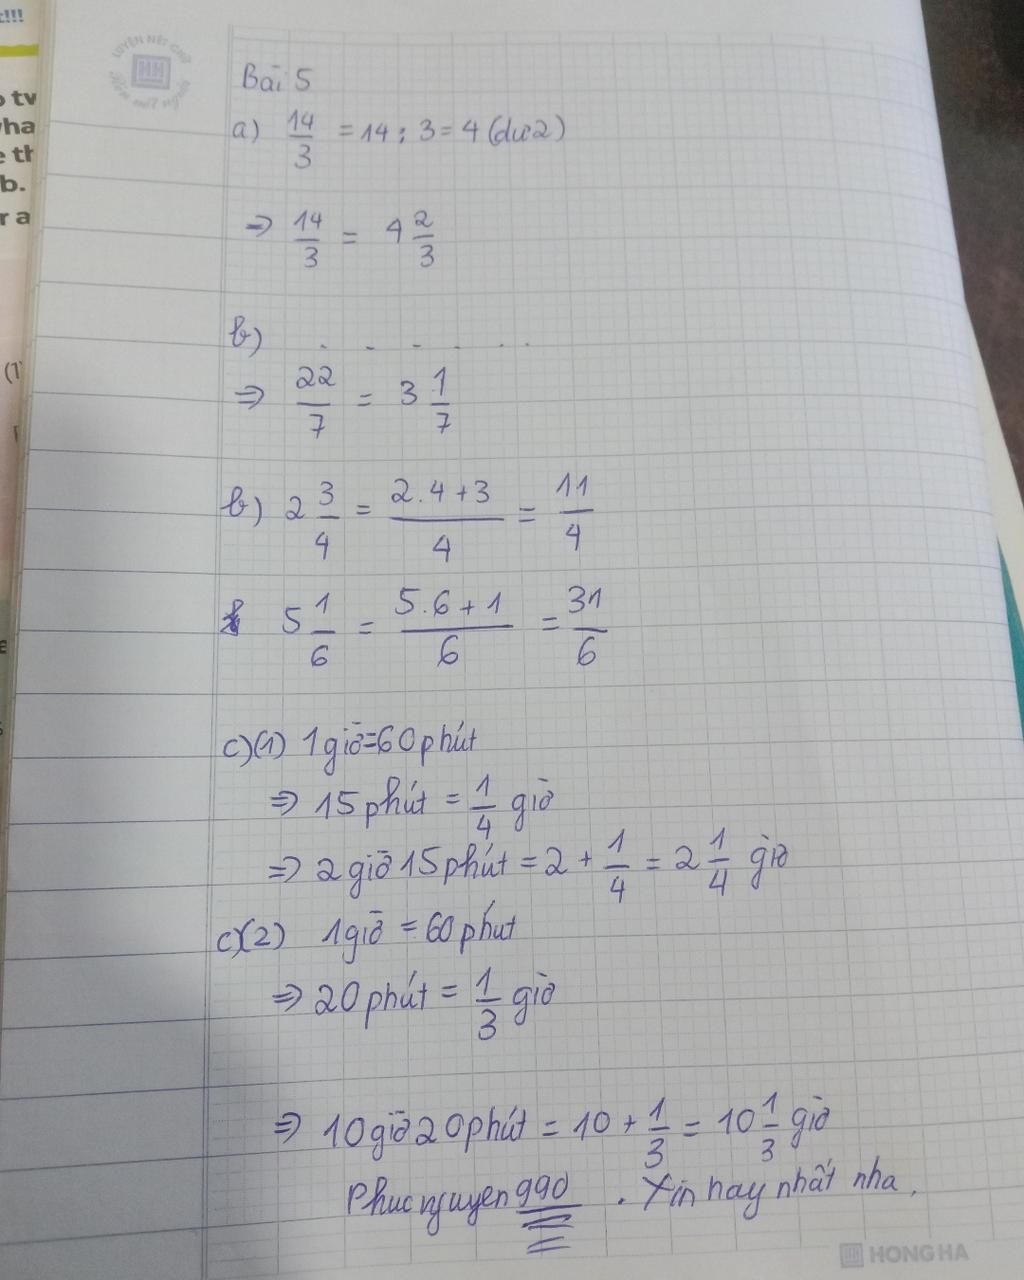 t!!!
o tw
wha
e th
b.
r a
(1)
LUYỆN NÉT CHỮ
HH
Rèn nết người
Bài 5
a) 14/3 = 14 : 3 = 4 (dư 2)
=> 14/3 = 4 2/3
b) . - - . . .
=> 22/7 = 3 1/7
b) 2 3/4 = (2.4+3)/4 = 11/4
5 1/6 = (5.6+1)/6 = 31/6
c)(1) 1 giờ = 60 phút
=> 15 phút = 1/4 giờ
=> 2 giờ 15 phút = 2 + 1/4 = 2 1/4 giờ
c)(2) 1 giờ = 60 phút
=> 20 phút = 1/3 giờ
=> 10 giờ 20 phút = 10 + 1/3 = 10 1/3 giờ
Phucnguyen990 . Xin hay nhất nha.
HONG HA